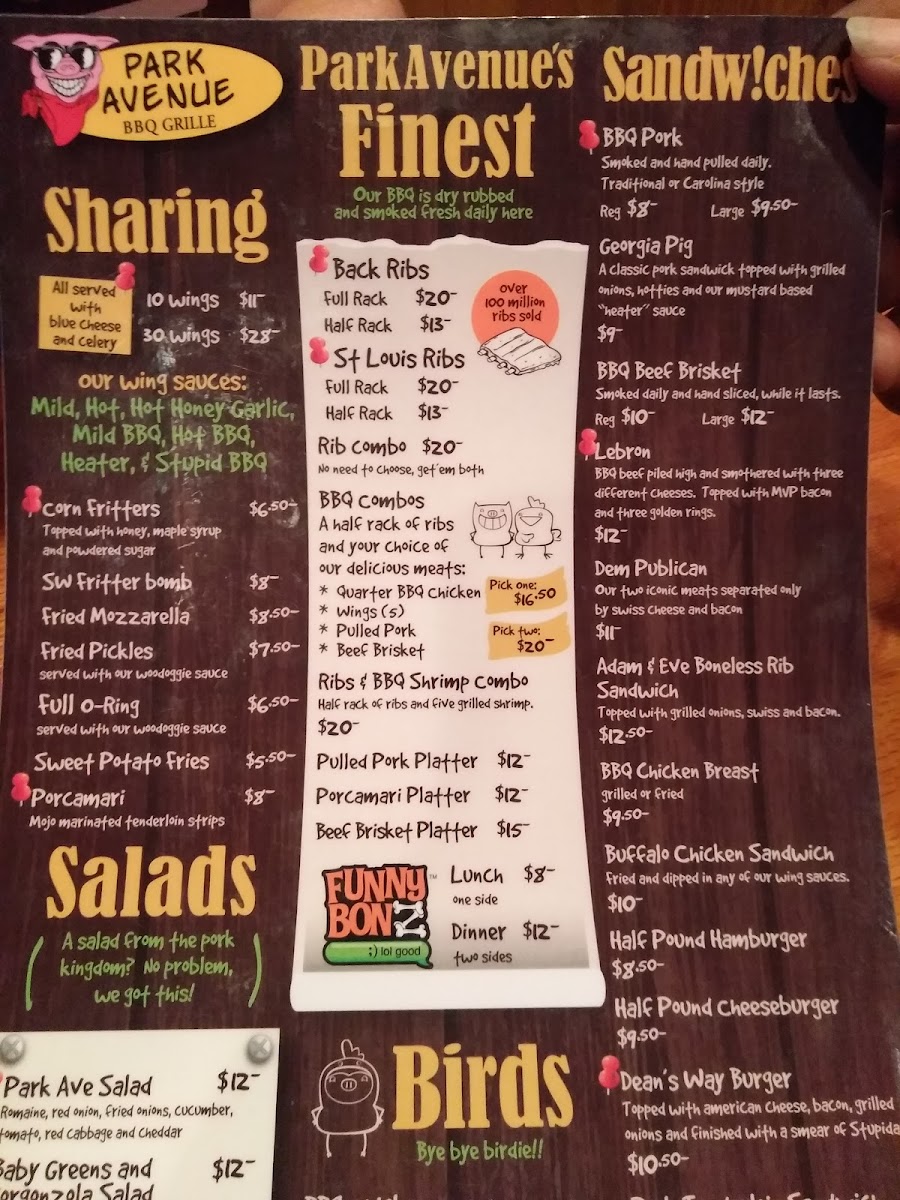 PARK
AVENUE
BBQ GRILLE
Sharing
All served
with
blue cheese
and celery
10 wings $11-
30 wings $28-
our wing sauces:
Mild, Hot, Hot Honey Garlic,
Mild BBQ, Hot BBQ,
Heater, & Stupid BBQ
Corn Fritters $6.50-
Topped with honey, maple syrup
and powdered sugar
SW Fritter bomb $8-
Fried Mozzarella $8.50-
Fried Pickles $7.50-
served with our woodoggie sauce
Full O-Ring $6.50-
served with our woodoggie sauce
Sweet Potato Fries $5.50-
Porcamari $8-
Mojo marinated tenderloin strips
Salads
A salad from the pork
kingdom? No problem,
we got this!
Park Ave Salad $12-
Romaine, red onion, fried onions, cucumber,
tomato, red cabbage and cheddar
Baby Greens and $12-
Gorgonzola Salad
Park Avenue's
Finest
Our BBQ is dry rubbed
and smoked fresh daily here
Back Ribs
Full Rack $20-
Half Rack $13-
over
100 million
ribs sold
St Louis Ribs
Full Rack $20-
Half Rack $13-
Rib Combo $20-
No need to choose, get'em both
BBQ Combos
A half rack of ribs
and your choice of
our delicious meats:
* Quarter BBQ Chicken
* Wings (5)
* Pulled Pork
* Beef Brisket
Pick one:
$16.50
Pick two:
$20-
Ribs & BBQ Shrimp Combo
Half rack of ribs and five grilled shrimp.
$20-
Pulled Pork Platter $12-
Porcamari Platter $12-
Beef Brisket Platter $15-
FUNNY
BON
™
;) lol good
Lunch $8-
one side
Dinner $12-
two sides
Birds
Bye bye birdie!!
Sandw!ches
BBQ Pork
Smoked and hand pulled daily.
Traditional or Carolina style
Reg $8- Large $9.50-
Georgia Pig
A classic pork sandwich topped with grilled
onions, hotties and our mustard based
"heater" sauce
$9-
BBQ Beef Brisket
Smoked daily and hand sliced, while it lasts.
Reg $10- Large $12-
Lebron
BBQ beef piled high and smothered with three
different cheeses. Topped with MVP bacon
and three golden rings.
$12-
Dem Publican
Our two iconic meats separated only
by swiss cheese and bacon
$11-
Adam & Eve Boneless Rib
Sandwich
Topped with grilled onions, swiss and bacon.
$12.50-
BBQ Chicken Breast
grilled or fried
$9.50-
Buffalo Chicken Sandwich
Fried and dipped in any of our wing sauces.
$10-
Half Pound Hamburger
$8.50-
Half Pound Cheeseburger
$9.50-
Dean's Way Burger
Topped with american cheese, bacon, grilled
onions and finished with a smear of Stupida
$10.50-